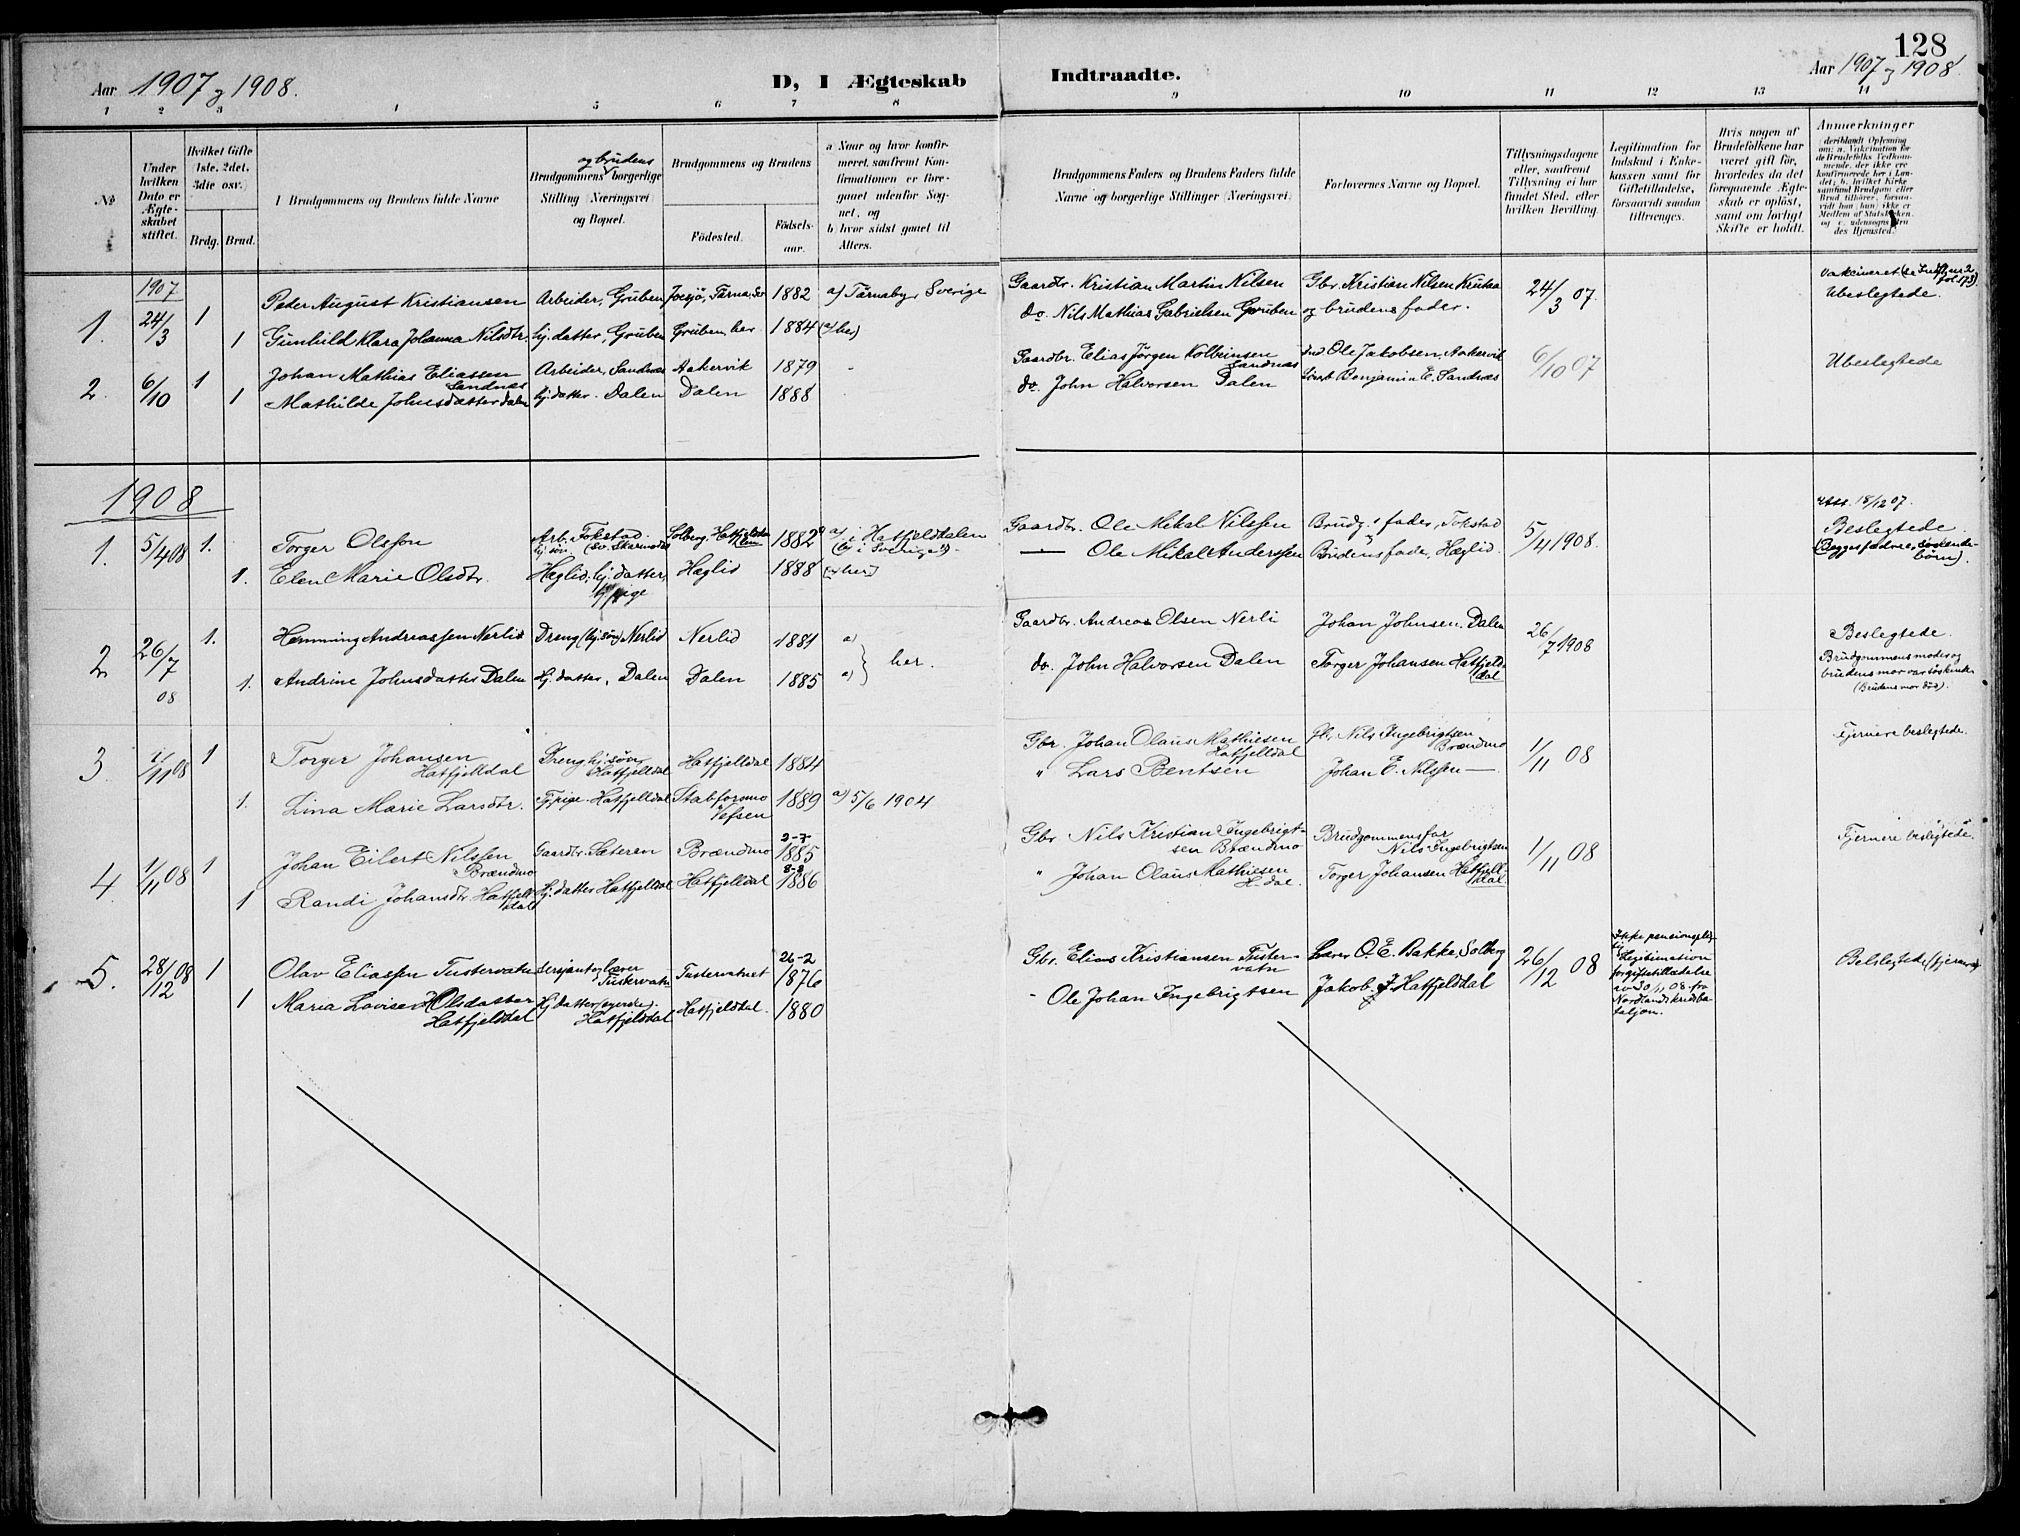 128
Aar 1907 og 1908.
D, I Ægteskab
Indtraadte.
Aar 1907 og 1908
1 2 3 4 5 6 7 8
9 10 11 12 13 14
No
Under hvilken Dato er Ægteskabet stiftet.
Hvilket Gifte 1ste. 2det. 3die osv.)
Brdg. Brud.
Brudgommens og Brudens fulde Navne
Brudgommens og brudens borgerlige Stilling (Næringsvei) og Bopæl.
Brudgommens og Brudens
Fødested.
Fødselsaar.
a Naar og hvor konfirmeret, saafremt Konfirmationen er foregaaet udenfor Sognet, og
b hvor sidst gaaet til Alters.
Brudgommens Faders og Brudens Faders fulde Navne og borgerlige Stillinger (Næringsvei)
Forlovernes Navne og Bopæl.
Tillysningsdagene eller, saafremt Tillysning ei har fundet Sted, efter hvilken Bevilling.
Legitimation for Indskud i Enkekassen samt for Giftetilladelse, forsaavidt saadan tiltrænges.
Hvis nogen af Brudefolkene har været gift før, hvorledes da det foregaaende Ægteskab er opløst, samt om lovligt Skifte er holdt.
Anmerkninger
1907
1. 24/3 1 Peter August Kristiansen Arbeider, Gruben Joesjø, Tärna, Sv 1882 a) Tärnaby, Sverige
Gaardbr. Kristian Martin Nilsen Gbr. Kristian Nilsen Krutaa 24/3 07 Vakcineret
Ubeslegtede.
1 Gunhild Klara Johanna Nilsdtr. hj. datter, Gruben Gruben, her 1884 (a her)
do. Nils Mathias Gabrielsen Gruben og brudens fader.
2. 6/10 1 Johan Mathias Eliassen Sandnæs Arbeider, Sandnæs Aakervik 1879
Gaardbr. Elias Jörgen Kolbeinsen Sandnæs Ind Ole Jakobsen, Aakervik 6/10 07 Ubeslegtede
1 Mathilde Johnsdatter Dalen hj. datter. Dalen Dalen 1888
do. John Halvorsen Dalen Benjamin E. Sandnæs
1908
1. 5/4 08 1. Torger Olsson Arb. Tokstad 1882 a) i Hatfjelddalen
(b) i Sverige
Gaardbr. Ole Mikal Nilssen Brudg.s fader, Tokstad 5/4 1908.
Att. 18/12 07.
Beslegtede.
(Begges fædre søskendebørn).
1. Elen Marie Olsdtr. Hæglid, hj. datter, pige Hæglid 1888 (a her)
— Ole Mikal Anderssen Brudens fader, Hæglid.
2 26/7 08 1. Hemming Andreassen Nerlid Dreng (hj. søn) Nerlid Nerlid 1881 a)
her.
Gaardbr. Andreas Olsen Nerli Johan Johnsen, Dalen 26/7 1908
Beslegtede.
Brudgommens moder og brudens mor var søskende
(Brudens mor død).
1. Andrine Johnsdatter Dalen Hj. datter, Dalen Dalen 1885 a)
do. John Halvorsen Dalen Torger Johansen Hatfjelddal
3 1/11 08 1 Torger Johansen Hatfjelldal Dreng hj. søn Hatfjelldal Hatfjelldal 1884
Gbr. Johan Olaus Mathiesen Hatfjelldal Gbr. Nils Ingebrigtsen Brændmo 1/11 08 Fjernere beslegtede.
1. Lina Marie Larsdtr. Tj. pige. Hatfjelldal Stabforsmo Vefsen 1889 a) 5/6 1904
" Lars Bentsen Johan E. Nilssen —
4 1/11 08 1 Johan Eilert Nilssen Brændmo Gaardbr. Sæteren Brændmo 2-7 1885
Gbr. Nils Kristian Ingebrigtsen Brændmo Brudgommens far Nils Ingebrigtsen 1/11 08 Fjernere beslegtede.
1 Randi Johansdtr. Hatfjelldal Hj. datter Hatfjelldal Hatfjelldal 8-8 1886
" Johan Olaus Mathiesen H-dal. Torger Johansen Hatfjelldal
5. 28/12 08 1 Olav Eliassen Tustervatn Sersjant og lærer Tustervatn Tustervatnet 26-2 1876
Gbr. Elias Kristiansen Tustervatn Lærer O. E. Bakke, Solberg 26/12 08
Ikke pensionspligtig
Legitimation for giftetilladelse av 30/11 08 fra Nordlands kredsbataljon.
Beslegtede (fjernere)
1 Maria Lovise Olsdatter Hatfjelddal Hj. datter Hatfjelddal Hatfjelddal. 1880
" Ole Johan Ingebrigtsen Jakob J. Hatfjelddal